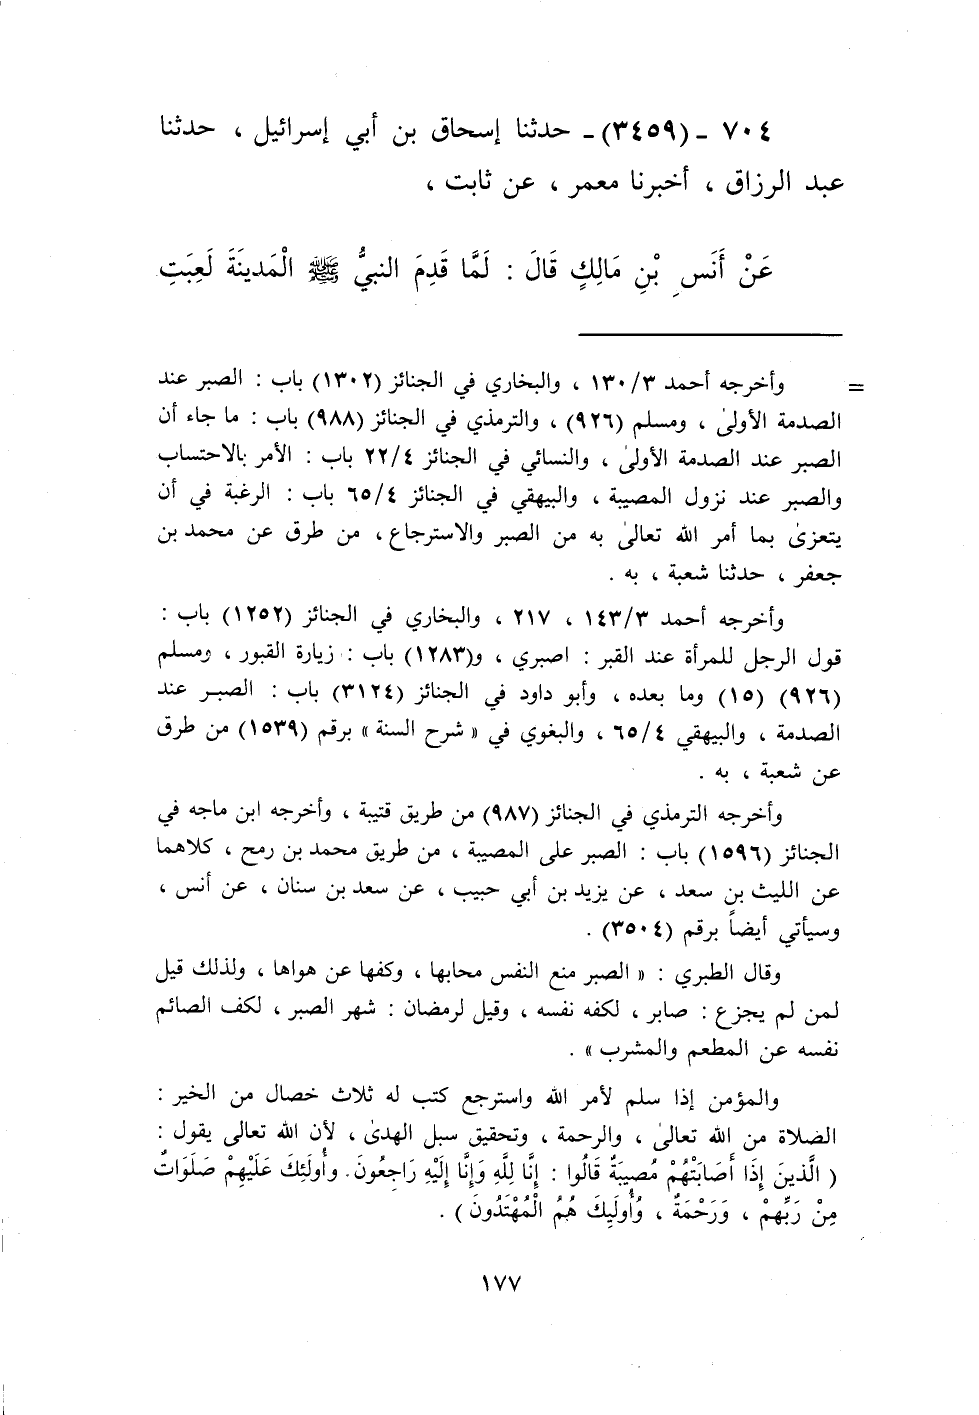 ٧٠٤ - (٣٤٥٩) - حدثنا إسحاق بن أبي إسرائيل ، حدثنا
عبد الرزاق ، أخبرنا معمر ، عن ثابت ،
عَنْ أَنَسِ بْنِ مَالِكٍ قَالَ : لَمَّا قَدِمَ النبيُّ ﷺ الْمَدينَةَ لَعِبَتِ
= وأخرجه أحمد ١٣٠/٣ ، والبخاري في الجنائز (١٣٠٢) باب : الصبر عند
الصدمة الأولىٰ ، ومسلم (٩٢٦) ، والترمذي في الجنائز (٩٨٨) باب : ما جاء أن
الصبر عند الصدمة الأولىٰ ، والنسائي في الجنائز ٢٢/٤ باب : الأمر بالاحتساب
والصبر عند نزول المصيبة ، والبيهقي في الجنائز ٦٥/٤ باب : الرغبة في أن
يتعزىٰ بما أمر الله تعالىٰ به من الصبر والاسترجاع ، من طرق عن محمد بن
جعفر ، حدثنا شعبة ، به .
وأخرجه أحمد ١٤٣/٣ ، ٢١٧ ، والبخاري في الجنائز (١٢٥٢) باب :
قول الرجل للمرأة عند القبر : اصبري ، و(١٢٨٣) باب : زيارة القبور ، ومسلم
(٩٢٦) (١٥) وما بعده ، وأبو داود في الجنائز (٣١٢٤) باب : الصبر عند
الصدمة ، والبيهقي ٦٥/٤ ، والبغوي في « شرح السنة » برقم (١٥٣٩) من طرق
عن شعبة ، به .
وأخرجه الترمذي في الجنائز (٩٨٧) من طريق قتيبة ، وأخرجه ابن ماجه في
الجنائز (١٥٩٦) باب : الصبر على المصيبة ، من طريق محمد بن رمح ، كلاهما
عن الليث بن سعد ، عن يزيد بن أبي حبيب ، عن سعد بن سنان ، عن أنس ،
وسيأتي أيضاً برقم (٣٥٠٤) .
وقال الطبري : « الصبر منع النفس محابها ، وكفها عن هواها ، ولذلك قيل
لمن لم يجزع : صابر ، لكفه نفسه ، وقيل لرمضان : شهر الصبر ، لكف الصائم
نفسه عن المطعم والمشرب » .
والمؤمن إذا سلم لأمر الله واسترجع كتب له ثلاث خصال من الخير :
الصلاة من الله تعالىٰ ، والرحمة ، وتحقيق سبل الهدىٰ ، لأن الله تعالى يقول :
( الَّذينَ إِذَا أَصَابَتْهُمْ مُصيبَةٌ قَالُوا : إِنَّا لِلَّهِ وَإِنَّا إِلَيْهِ رَاجِعُونَ . وأُولَئِكَ عَلَيْهِمْ صَلَوَاتٌ
مِنْ رَبِّهِمْ ، وَرَحْمَةٌ ، وَأُولَئِكَ هُمُ الْمُهْتَدُونَ ) .
١٧٧